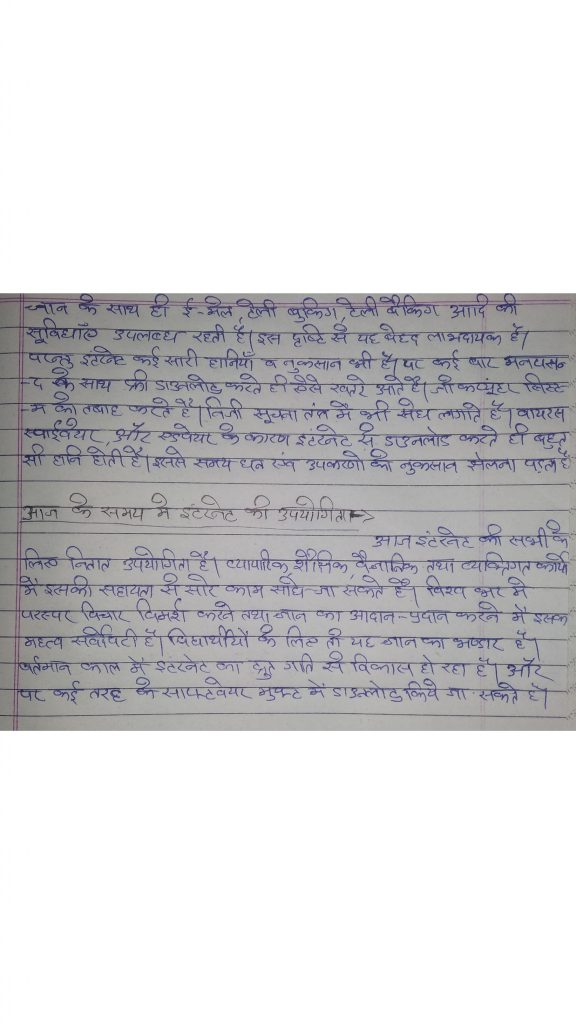 -ज्ञान के साथ ही ई-मेल, टेली बुकिंग, टेली बैंकिंग आदि की
सुविधाएँ उपलब्ध रहती हैं। इस दृष्टि से यह बेहद लाभदायक है।
परन्तु इंटरनेट कई सारी हानियाँ व नुकसान भी हैं। पर कई बार मनपसन
-द के साथ फ्री डाउनलोड करते ही ऐसे खतरे आते है। जो कंप्यूटर सिस्ट
-म को तबाह करते है। निजी सूचना तंत्र में भी सेंध लगाते हैं। वायरस
स्पाईवेयर, और एडवेयर के कारण इंटरनेट से डाउनलोड करते ही बहुत
सी हानि होती हैं। इससे समय धन एवं उपकरणो को नुकसान झेलना पड़ता है
आज के समय मे इंटरनेट की उपयोगिता→
आज इंटरनेट की सभी के
लिए नितांत उपयोगिता हैं। व्यापारिक शैक्षिक वैज्ञानिक तथा व्यक्तिगत कार्यो
में इसकी सहायता से सारे काम साधे-जा सकते हैं। विश्व भर मे
परस्पर विचार विमर्श करने तथा ज्ञान का आदान-प्रदान करने में इसका
महत्व सर्वोपरि है। विद्यार्थीयों के लिए तो यह ज्ञान का भण्डार है।
वर्तमान काल में इंटरनेट का द्रुत गति से विकास हो रहा है। और
पर कई तरह के साफ्टवेयर मुफ्त में डाउनलोड किये जा सकते हैं।